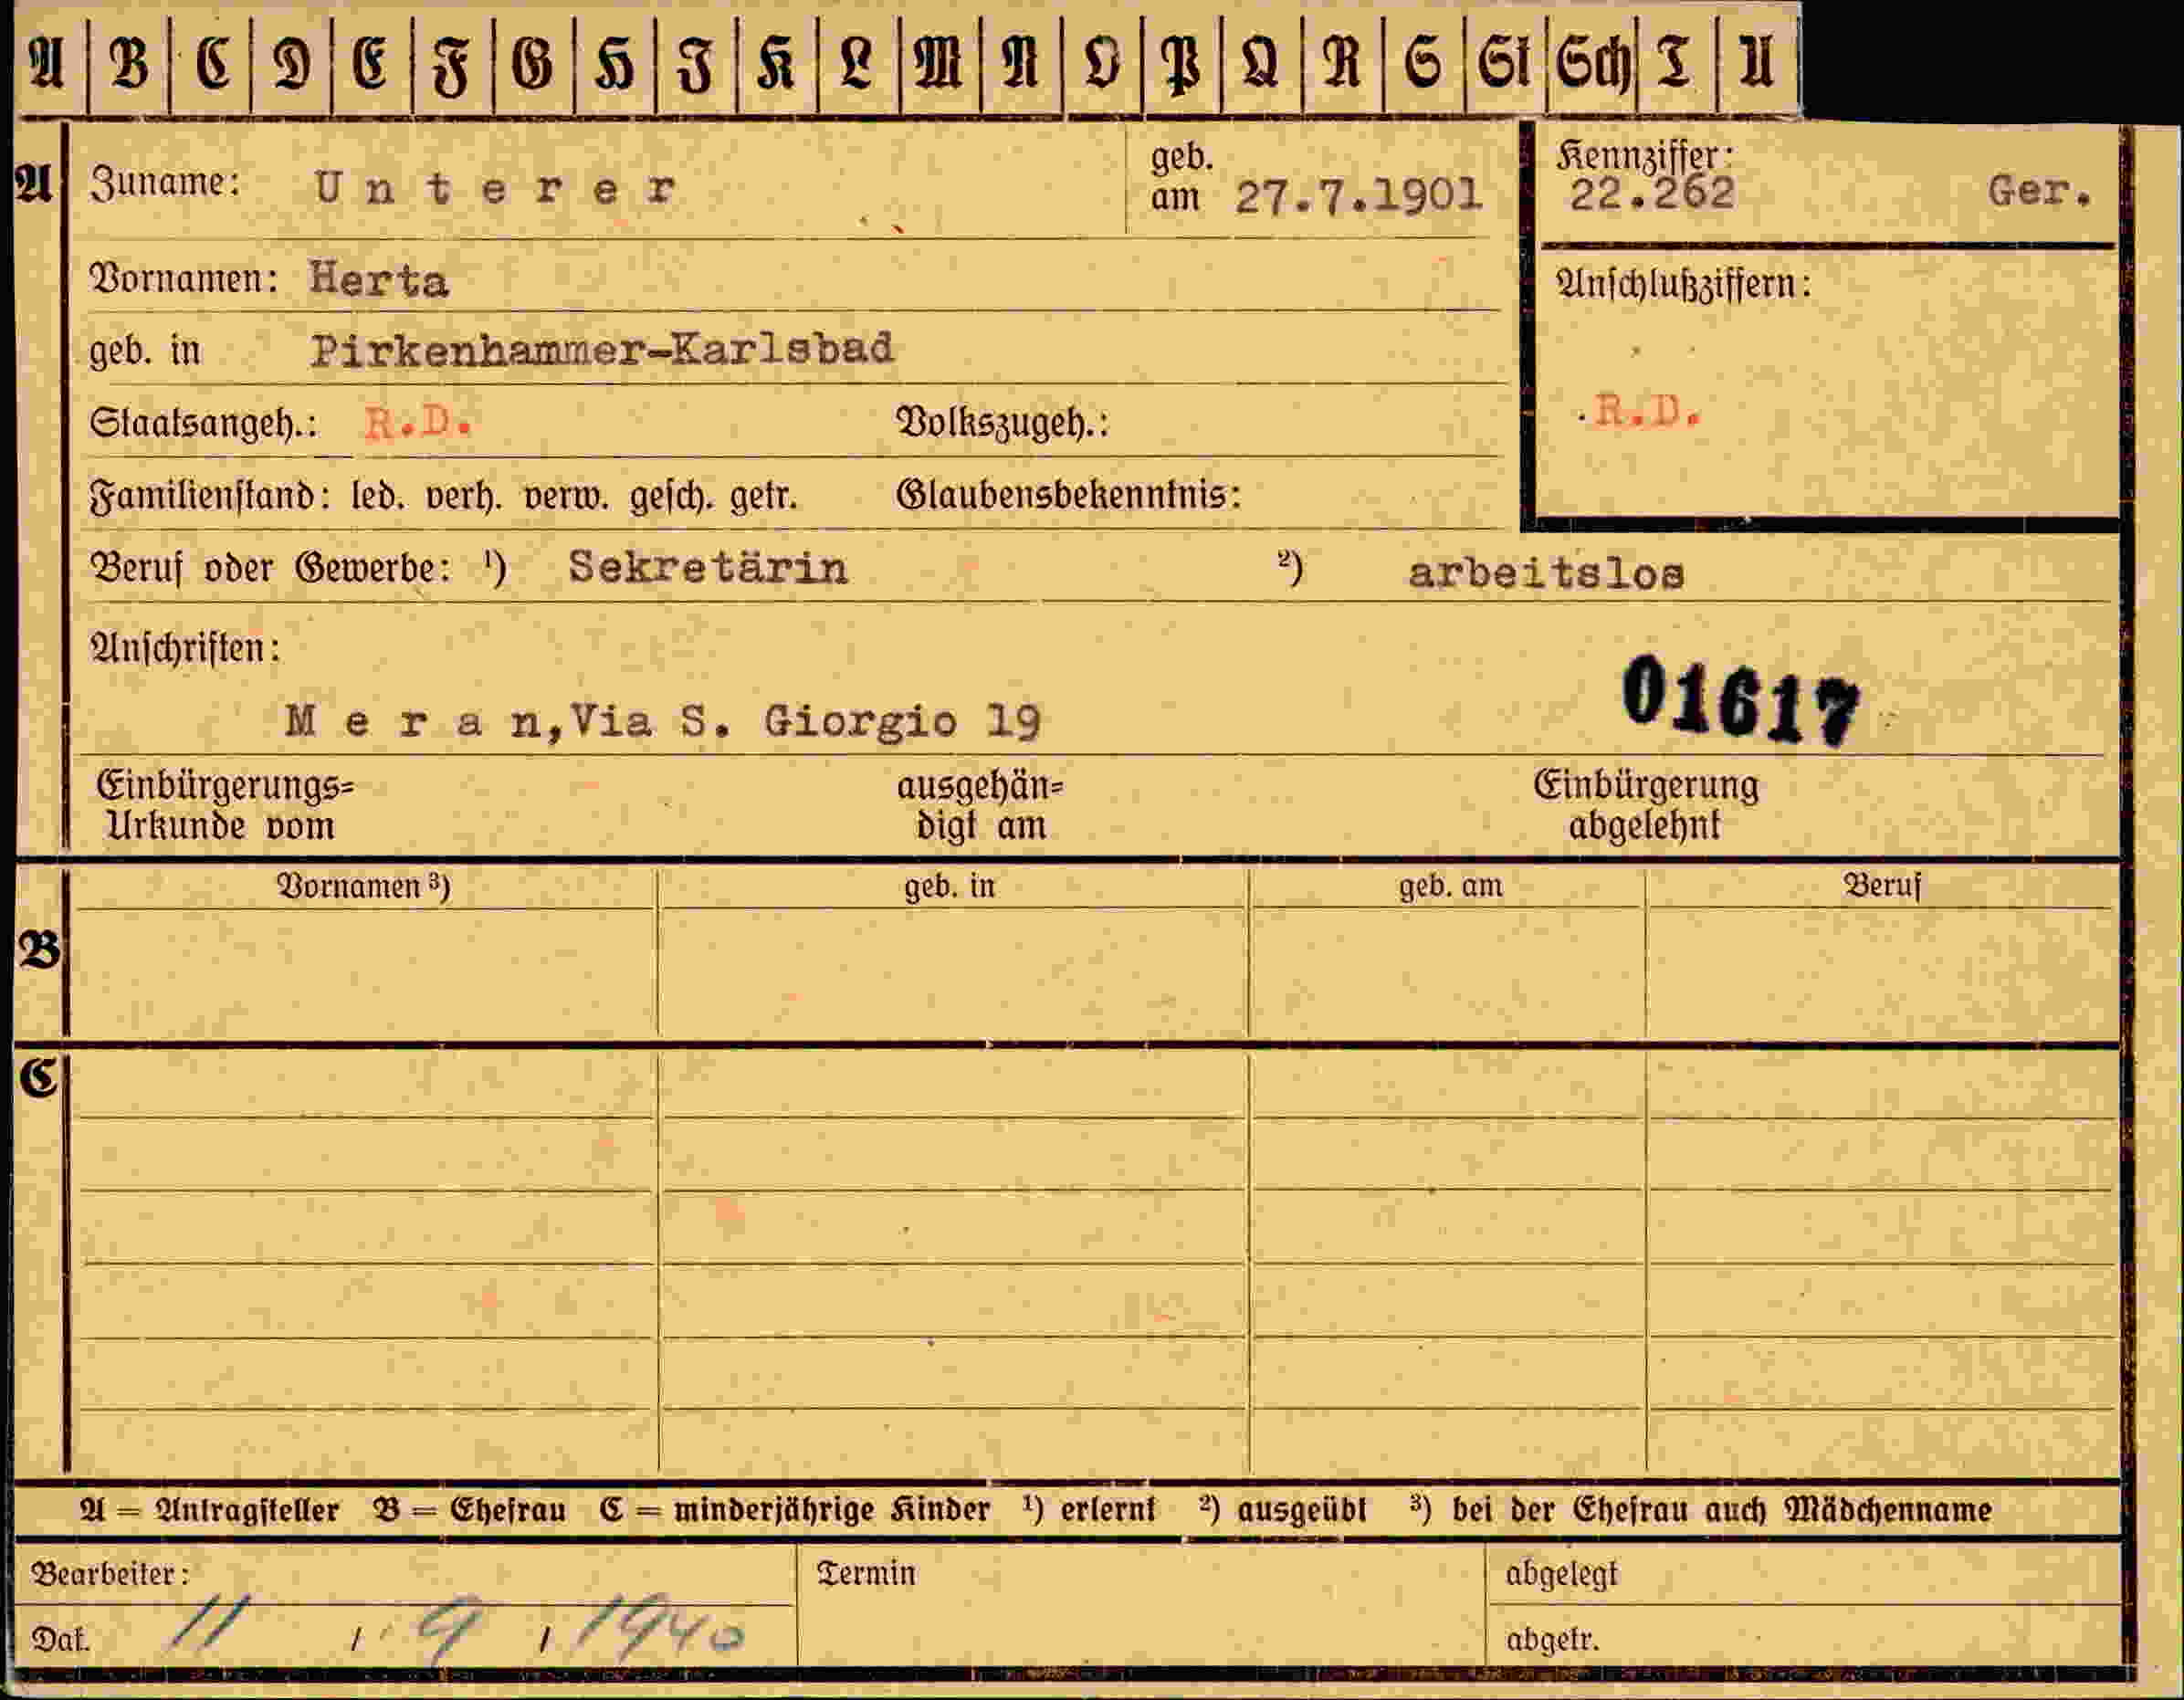 A B C D E F G H I K L M N O P Q R S St Sch T U
A Zuname: Unterer geb. am 27.7.1901 Kennziffer: 22.262 Ger.
Vornamen: Herta Anschlußziffern:
geb. in Pirkenhammer-Karlsbad
Staatsangeh.: R.D. Volkszugeh.: R.D.
Familienstand: led. verh. verw. gesch. getr. Glaubensbekenntnis:
Beruf oder Gewerbe: ¹) Sekretärin ²) arbeitslos
Anschriften:
Meran, Via S. Giorgio 19 01617
Einbürgerungs= ausgehän= Einbürgerung
Urkunde vom digt am abgelehnt
Vornamen ³) geb. in geb. am Beruf
B
C
A = Antragsteller B = Ehefrau C = minderjährige Kinder ¹) erlernt ²) ausgeübt ³) bei der Ehefrau auch Mädchenname
Bearbeiter: Termin abgelegt
Dat. 11 / 9 / 1940 abgetr.